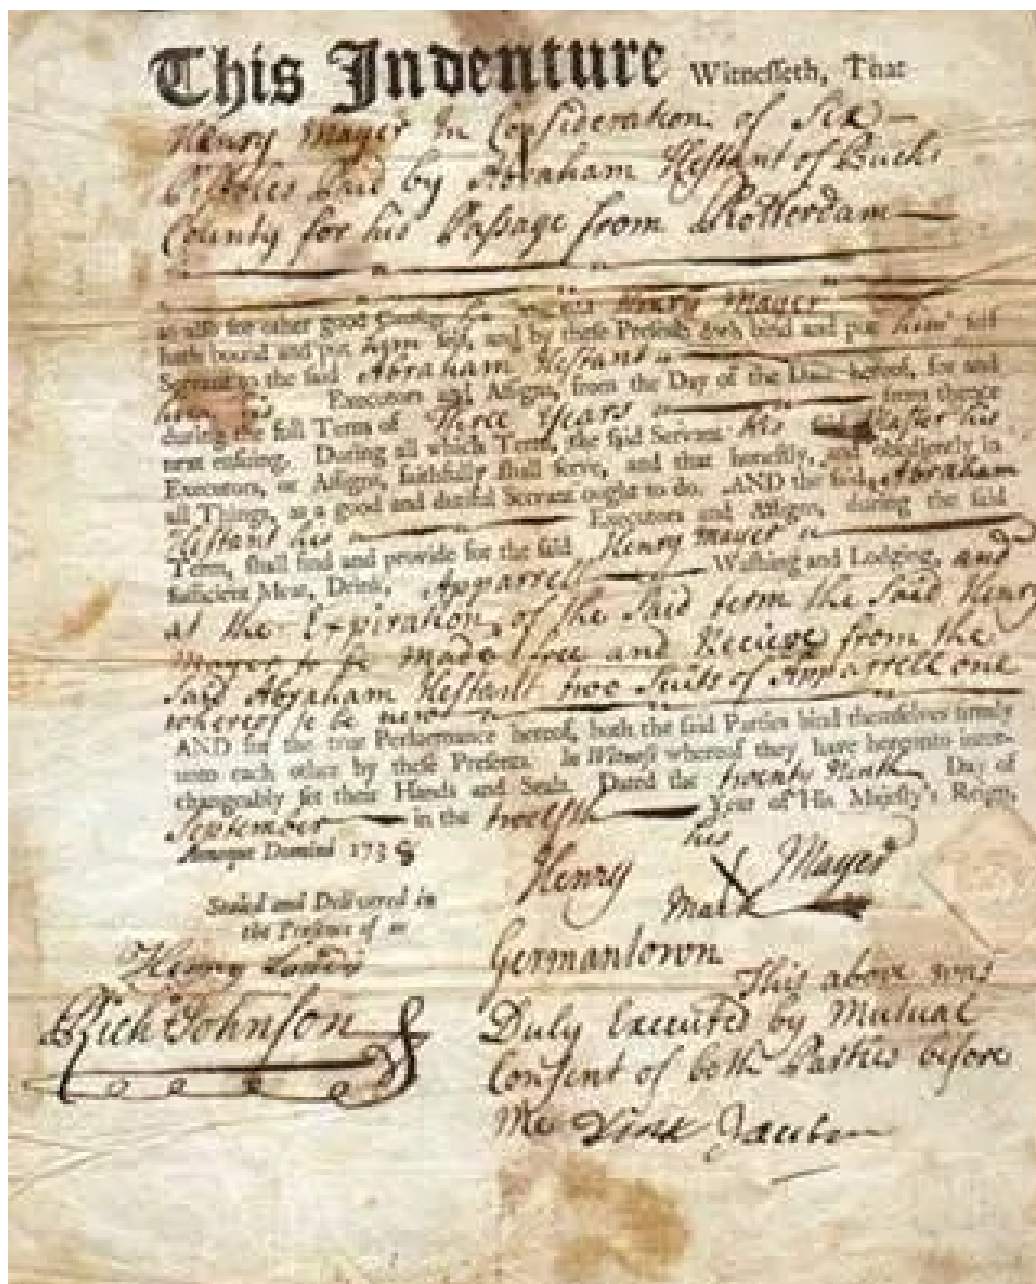 This Indenture Witnesseth, That
Henry Mayer In Consideration of Six
Pistoles paid by Abraham Hestant of Bucks
County for his Passage from Rotterdam
as also for other good Causes he the said Henry Mayer
hath bound and put him self, and by these Presents doth bind and put him self
Servant to the said Abraham Hestant
Executors and Assigns, from the Day of the Date hereof, for and
during the full Term of Three Years from thence
next ensuing. During all which Term, the said Servant his said Master his
Executors, or Assigns, faithfully shall serve, and that honestly, and obediently in
all Things, as a good and dutiful Servant ought to do. AND the said Abraham
Hestant his Executors and Assigns, during the said
Term, shall find and provide for the said Henry Mayer
sufficient Meat, Drink, Apparrell Washing and Lodging, and
at the Expiration of the Said term the Said Henry
Mayer to be Made free and Recieve from the
Said Abraham Hestant two Suits of Apparrell one
whereof to be new
AND for the true Performance hereof, both the said Parties bind themselves firmly
unto each other by these Presents. In Witness whereof they have hereunto inter-
changeably set their Hands and Seals. Dated the twenty Ninth Day of
September in the twelfth Year of His Majesty's Reign,
Annoque Domini 1738
his
Henry X Mayer
Mark
Sealed and Delivered in
the Presence of
Henry
Rich Johnson
Germantown
This above was
Duly Executed by Mutual
Consent of both Parties before
Me